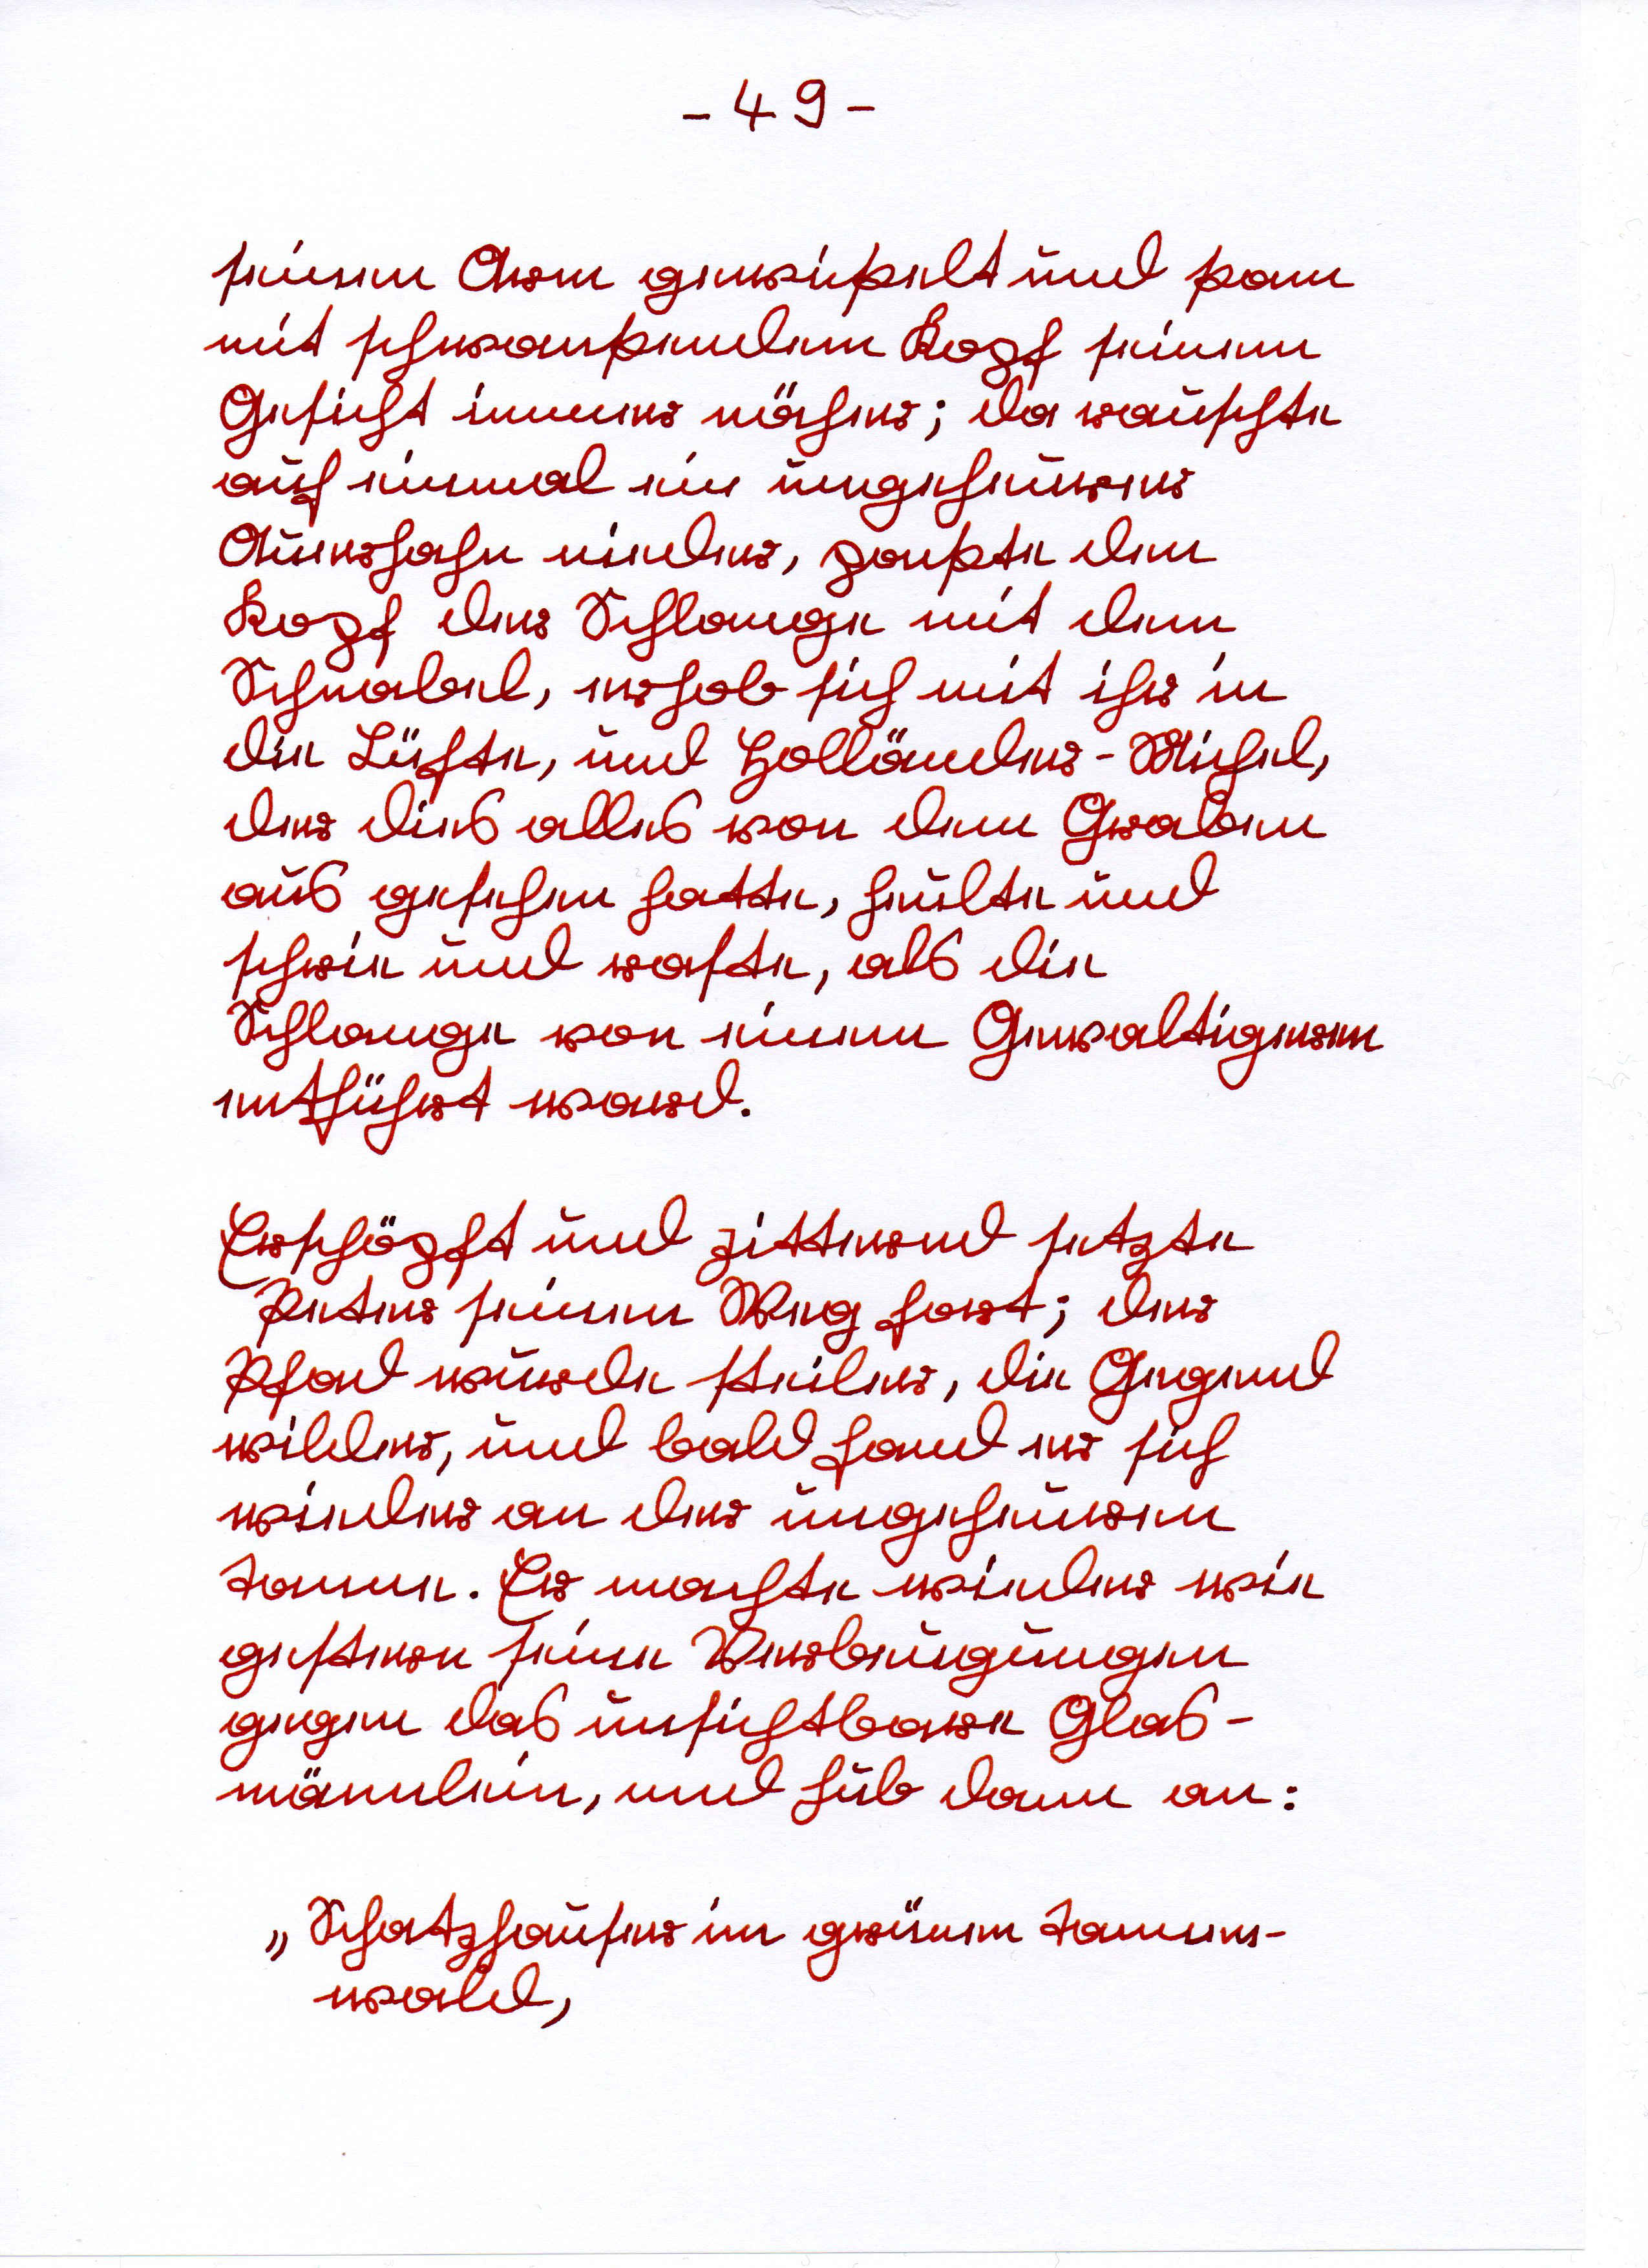 - 49 -
seinen Arm gewickelt und kam
mit schwankendem Kopf seinem
Gesicht immer näher; da rauschte
auf einmal ein ungeheurer
Auerhahn nieder, packte den
Kopf der Schlange mit dem
Schnabel, erhob sich mit ihr in
die Lüfte, und Holländer-Michel,
der dies alles von dem Graben
aus gesehen hatte, heulte und
schrie und raste, als die
Schlange von einem Gewaltigeren
entführt ward.
Erschöpft und zitternd setzte
Peter seinen Weg fort; der
Pfad wurde steiler, die Gegend
wilder, und bald fand er sich
wieder an der ungeheuren
Tanne. Er machte wieder wie
gestern seine Verbeugungen
gegen das unsichtbare Glas-
männlein, und hub dann an:
„Schatzhauser im grünen Tannen-
wald,